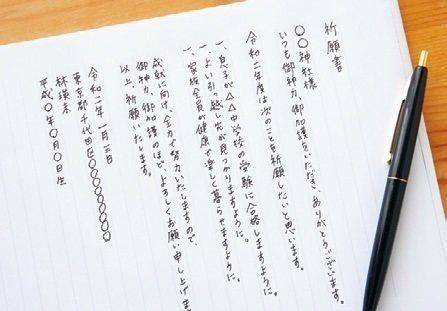 祈願書
〇〇神社様
いつも御神力、御加護をいただき、ありがとうございます。
令和二年度は次のことを祈願したいと思います。
一、息子が△△中学校の受験に合格しますように。
一、よい引っ越し先が見つかりますように。
一、家族全員が健康で楽しく暮らせますように。
成就に向け、全力で努力いたしますので、
御神力、御加護のほど、よろしくお願い申し上げま
以上、祈願いたします。
令和二年一月三日
東京都千代田区〇〇〇〇〇〇
林瑛未
平成〇年〇月〇日生